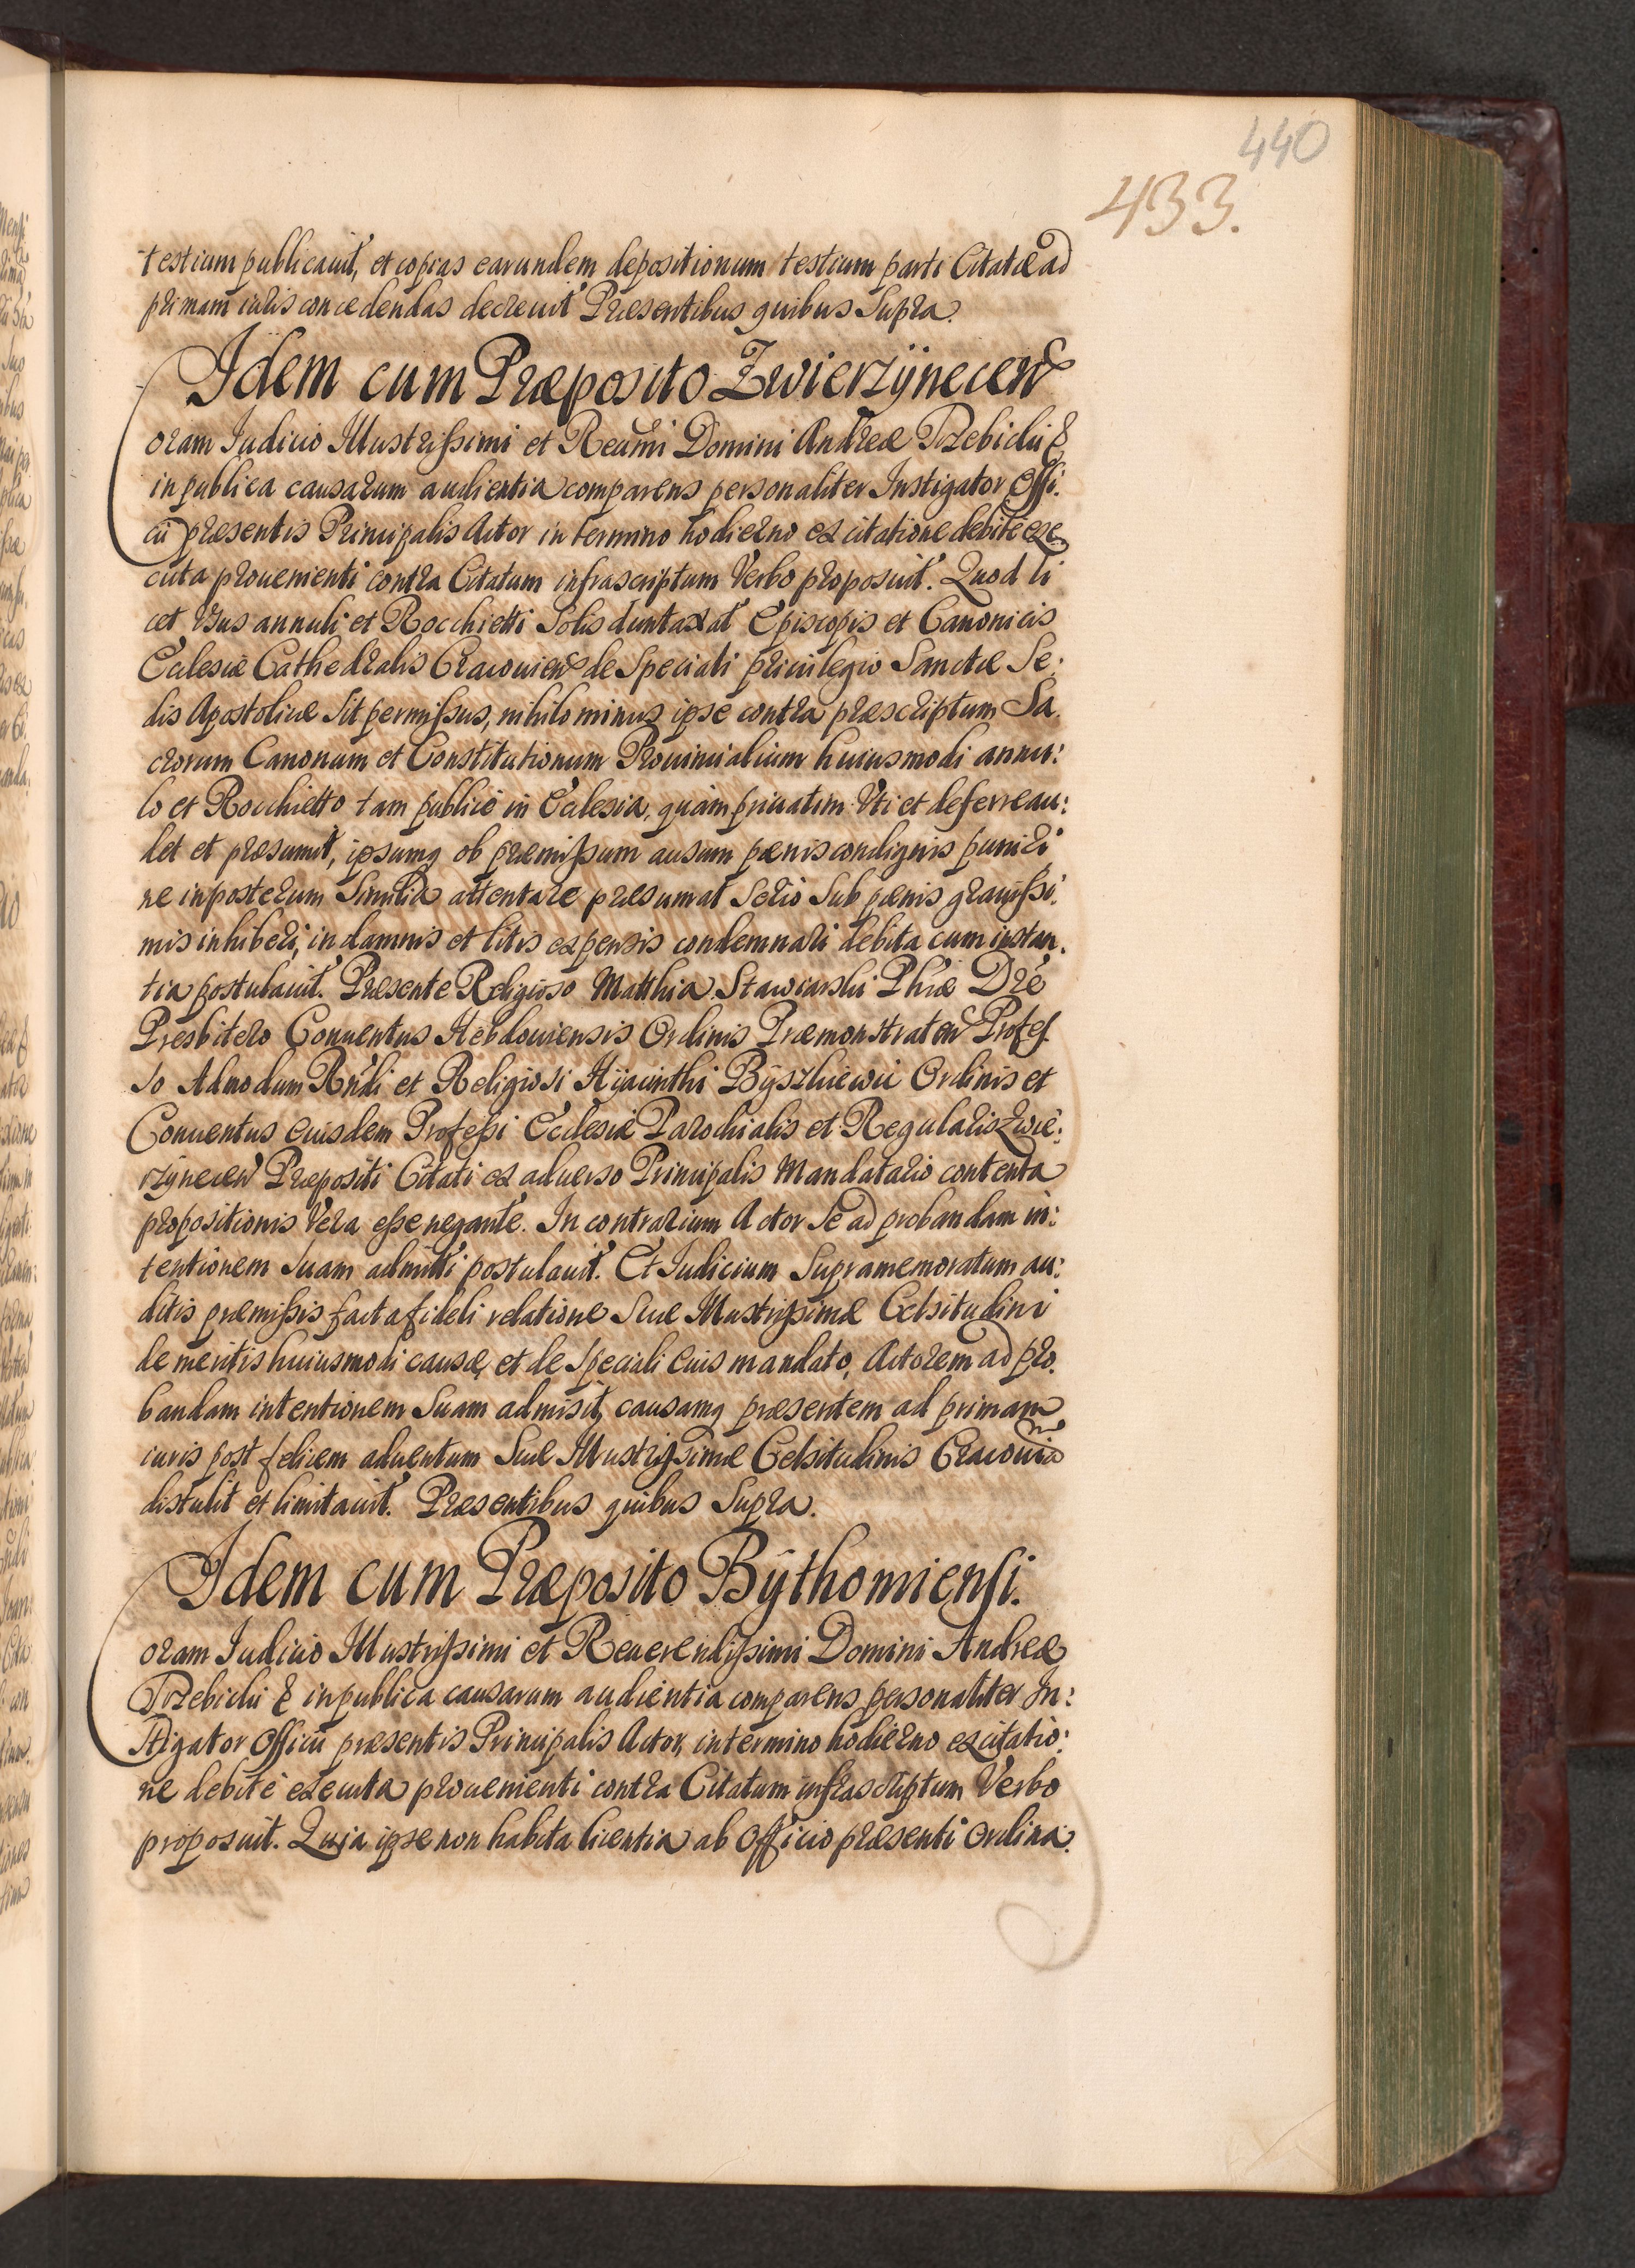 440
433.
testium publicauit, et copias earundem depositionum testium parti Citatæ ad
primam iuris concedendas decreuit Præsentibus quibus Supra.
Idem cum Præposito Zwierzÿnecen
Coram Iudicio Illustrißimi et Reuerndmi Domini Andreæ Trzebicki &
in publica causarum audientia comparens personaliter Instigator Offi.
cii præsentis Principalis Actor in termino hodierno ex citatione debite exe
cuta prouenienti contra Citatum infrascriptum Verbo proposuit. Quod li
cet Vsus annuli et Rocchietti Solis duntaxat Episcopis et Canonicis
Ecclesiæ Cathedralis Cracouien de Speciali priuilegio Sanctæ Se:
dis Apostolicæ Sit permißus, nihilominus ipse contra præscriptum Sa.
crorum Canonum et Constitutionum Prouincialium huiusmodi annu:
lo et Rocchietto tam publicè in Ecclesia, quàm priuatim Vti et deferre au:
det et præsumit, ipsumq ob præmißum ausum pænis condignis puniri
ne inposterum Similia attentare præsumat Serio Sub pænis grauißi.
mis inhiberi, in damnis et litis expensis condemnari debita cum instan.
tia postulauit. Præsente Religioso Matthia Stawiarski Phiæ Dre
Presbitero Conuentus Hebdouiensis Ordinis Præmonstraten Profes
so Admodum Rndi et Religiosi Hijacinthi Bÿszkiewic Ordinis et
Conuentus eiusdem Profeßi Ecclesiæ Parochialis et Regularis Zwie:
rzÿnecen Præpositi Citati ex aduerso Principalis Mandatario contenta
propositionis Vera eße negante. In contrarium Actor Se ad probandam in:
tentionem Suam admitti postulauit. Et Iudicium Supramemoratum au:
ditis præmißis facta fideli relatione Suæ Illustrißimæ Celsitudini
de meritis huiusmodi causæ, et de Speciali eius mandato, Actorem ad pro.
bandam intentionem Suam admisit, causamq præsentem ad primam
iuris post felicem aduentum Suæ Illustrißimæ Celsitudinis Cracouiam
distulit et limitauit. Præsentibus quibus Supra.
Idem cum Præposito Bÿthomiensi.
Coram Iudicio Illustrißimi et Reuerendißimi Domini Andreæ
Trzebicki & in publica causarum audientia comparens personaliter In:
stigator Officii præsentis Principalis Actor, in termino hodierno ex citatio:
ne debitè executa prouenienti contra Citatum infrascriptum Verbo
proposuit. Quia ipse non habita licentia ab Officio præsenti Ordina: